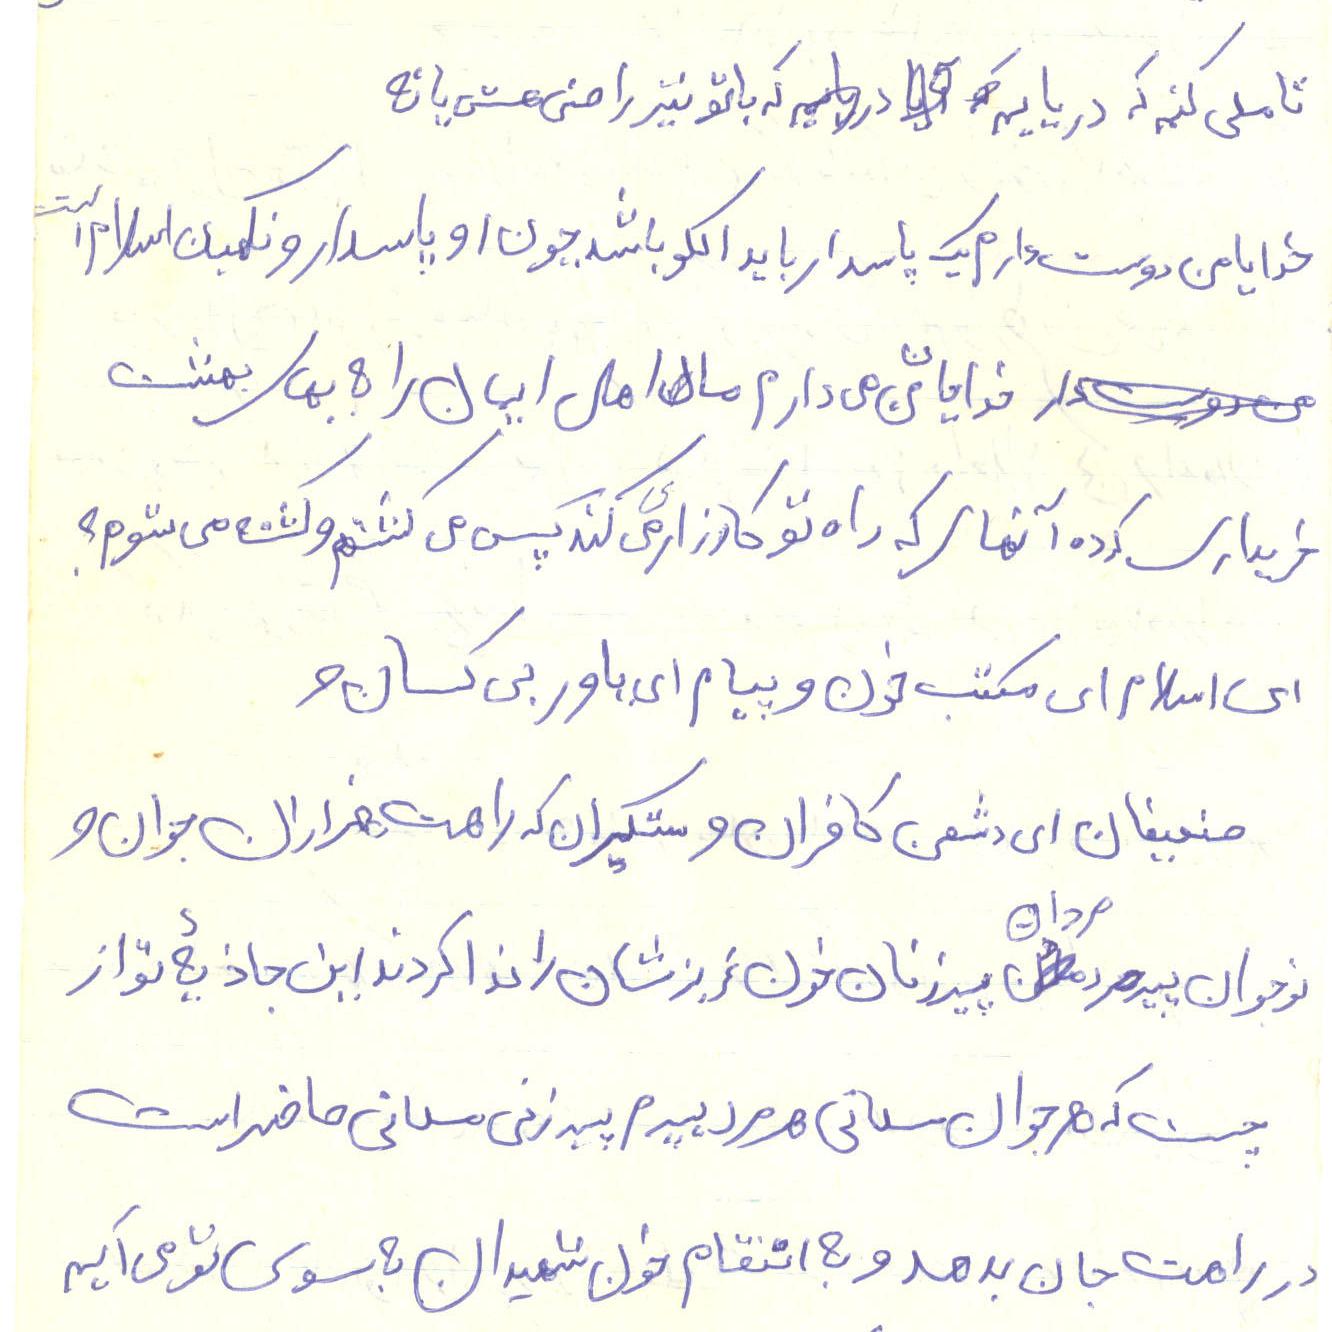 تاملی کنم که دریابم که با تو نیز راضی هستی یا نه
خدایا من دوست دارم یک پاسدار باید الگو باشد چون او پاسدار و نگهبان اسلام است
خدایا می دارم اهل ایمان را به بهای بهشت
خریداری کرده آنهای که راه تو کارزاری می کنند پس می کشم و کشته می شوم؟
ای اسلام ای مکتب خون و پیام ای یاور بی کسان و
ضعیفان ای دشمن کافران و ستمگران که راهت هزاران جوان و
نوجوان پیر مردان پیرزنان خون عزیزشان را فدا کردند این جاذبهٔ تو از
چیست که هر جوان مسلمانی هر مرد پیرم پیرزنی مسلمانی حاضر است
در راهت جان بدهد و به انتقام خون شهیدان به سوی تو می آیم